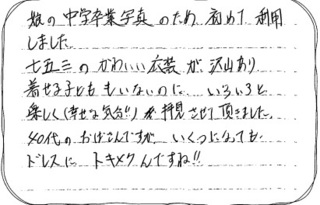 娘の中学卒業写真のため、初めて利用
しました。
七五三のかわいい衣装が沢山あり
着せる子どももいないのに、いろいろと
楽しく(幸せな気分!)拝見させて頂きました。
40代のおばさんですが、いくつになっても
ドレスにトキメクんですね!!